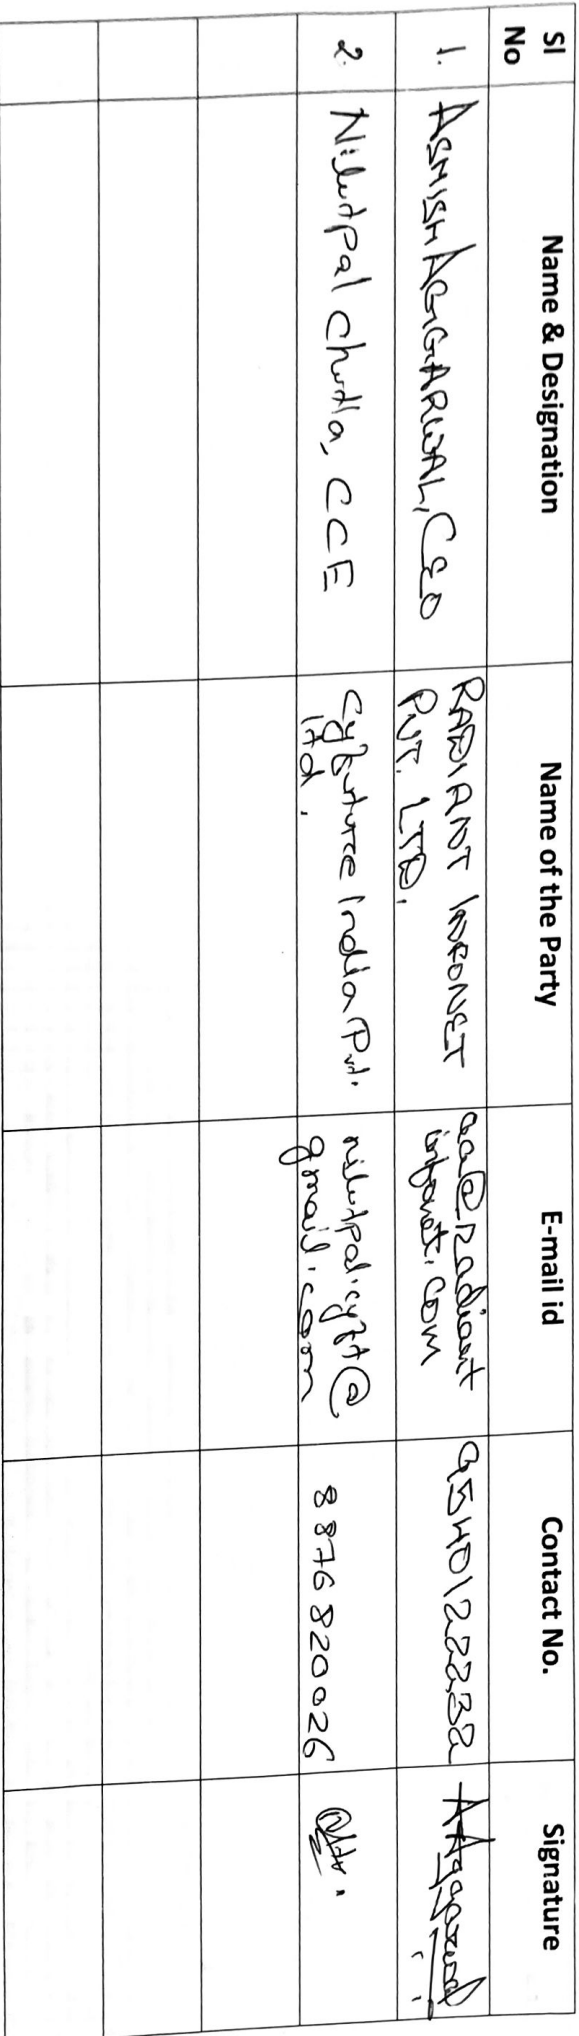 Sl No
Name & Designation
Name of the Party
E-mail id
Contact No.
Signature
1.
ASHISH AGGARWAL, CEO
RADIANT INFONET
PVT. LTD.
aa@radiant
infonet.com
9540122232
AAggarwal
2.
Nilutpal Chutia, CCE
Cyfuture India Pvt.
ltd.
nilutpal.cyft@
gmail.com
8876820026